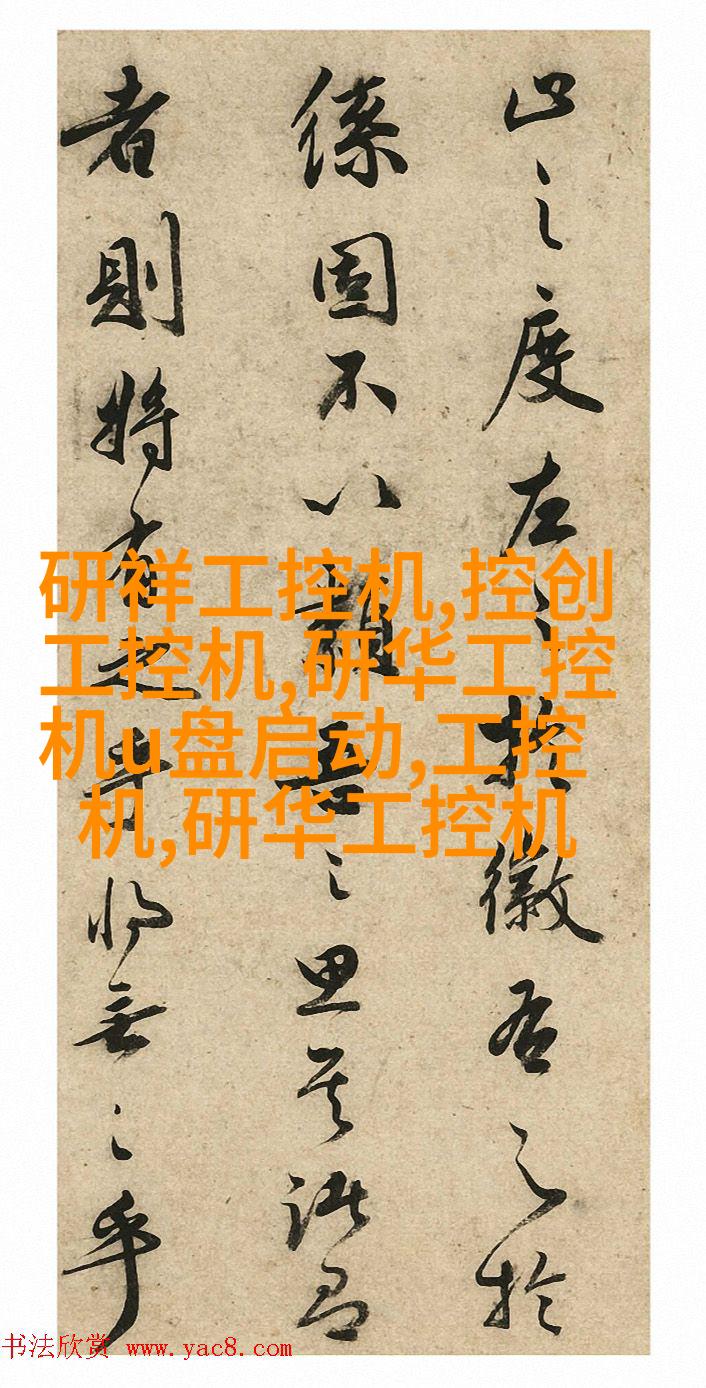 研祥工控机,控创
工控机,研华工控
机u盘启动,工控
机,研华工控机
之度左控徽否之於
固不以之思其
者則將有之將無之乎
书法欣赏 www.yac8.com